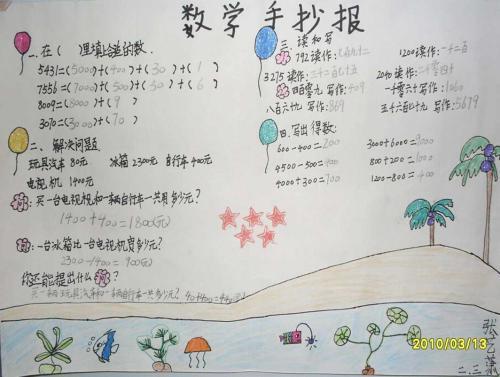 数学手抄报
一、在( )里填上合适的数.
5431=(5000)+(400)+(30)+(1)
7556=(7000)+(500)+(50)+(6)
8009=(8000)+(9)
3070=(3000)+(70)
二、解决问题
玩具汽车 80元 冰箱 2300元 自行车 400元
电视机 1400元
买一台电视机和一辆自行车一共用多少元?
1400+400=1800(元)
一台冰箱比一台电视机贵多少元?
2300-1400=900(元)
你还能提出什么?
买一辆玩具汽车和一辆自行车一共多少元?
三、读和写
792读作:七百九十二 1200读作:一千二百
3275读作:三千二百七十五 2040读作:二千零四十
四百零九 写作:409 一千零六十 写作:1060
八百六十九 写作:869 五千六百七十九 写作:5679
四、写出得数:
600-400=200 3000+6000=9000
4500-500=400 800+200=1000
4000+300=700 1200-800=400
2010/03/13
二.三